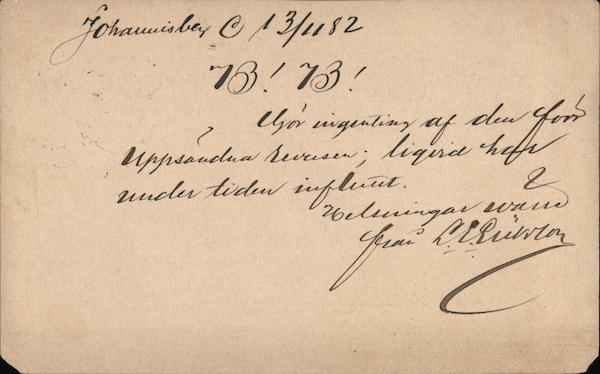 Johannisberg C 13/11 82
B! B!
Gör ingenting af den förr
uppsända reversen; liqvid har
under tiden influtit.
Helsningar
från L. E. Erikson